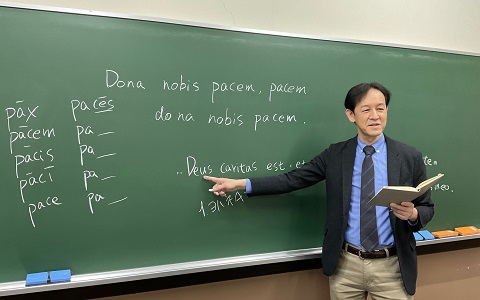 Dona nobis pacem, pacem
dona nobis pacem.
pāx pacēs
pācem pa—
pācis pa—
pācī pa—
pace pa—
..Deus caritas est. et